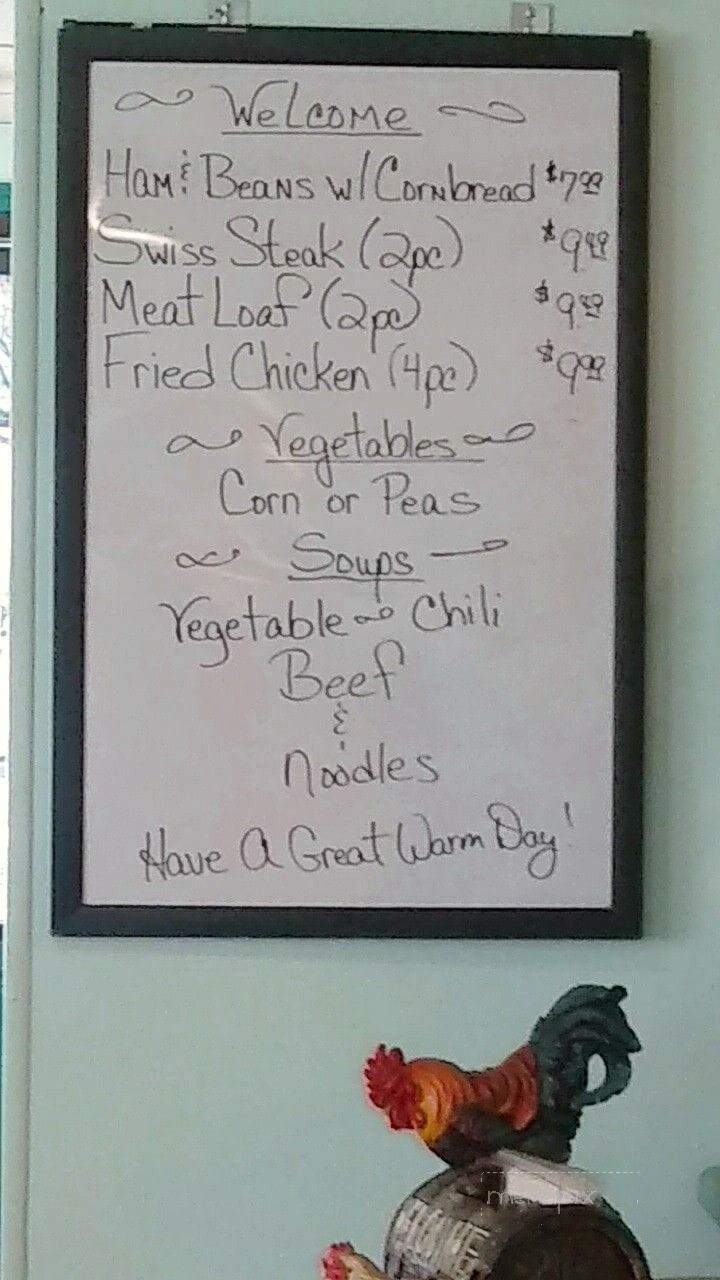 Welcome
Ham & Beans w/ Cornbread $7.99
Swiss Steak (2pc) $9.99
Meat Loaf (2pc) $9.99
Fried Chicken (4pc) $9.99
Vegetables
Corn or Peas
Soups
Vegetable ~ Chili
Beef
&
Noodles
Have A Great Warm Day!